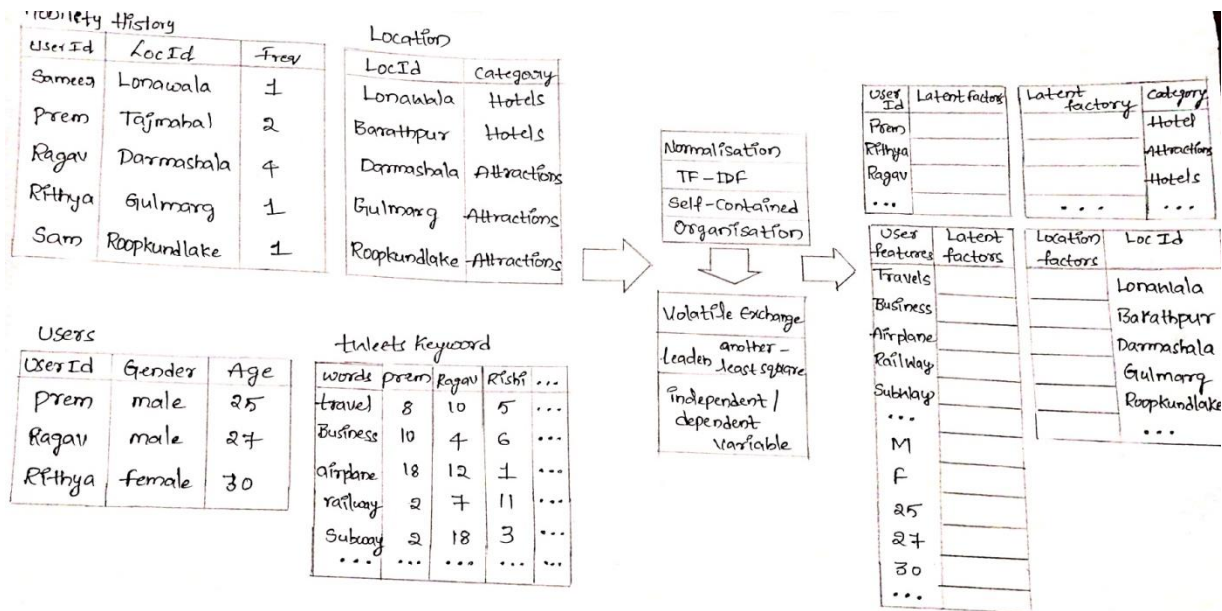 Mobility History
UserId LocId Freq
Sameer Lonawala 1
Prem Tajmahal 2
Ragav Darmashala 4
Rithya Gulmarg 1
Sam Roopkundlake 1
Location
LocId Category
Lonawala Hotels
Barathpur Hotels
Darmashala Attractions
Gulmarg Attractions
Roopkundlake Attractions
Users
UserId Gender Age
Prem male 25
Ragav male 27
Rithya female 30
tuleets Keyword
words prem Ragav Rishi ...
travel 8 10 5 ...
Business 10 4 6 ...
airplane 18 12 1 ...
railway 2 7 11 ...
Subway 2 18 3 ...
... ... ... ... ...
Normalisation
TF-IDF
Self-Contained
Organisation
Volatile Exchange
another-
leaden least square
independent /
dependent
variable
User Id Latent factors
Prem
Rithya
Ragav
...
Latent factory Category
Hotel
Attractions
Hotels
... ...
User features Latent factors
Travels
Business
Airplane
Railway
Subhlay
...
M
F
25
27
30
...
Location factors Loc Id
Lonanlala
Barathpur
Darmashala
Gulmarg
Roopkundlake
...